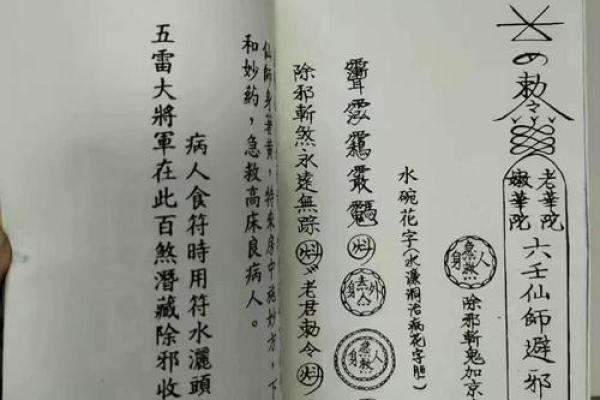 の勅令
老華陀
嫩華陀
六壬仙師避邪
除邪斬鬼加京
水碗花字(水濂洞治病花字胆)
除邪斬煞永遠無踪
老君勅令
仙師身著黄，將來房中施妙方，下
和妙药，急救高床良病人。
病人食符時用符水灑頭
五雷大將軍在此百煞潛藏除邪收